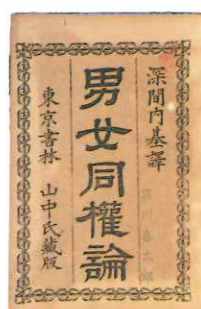 深間内基譯
男女同權論
東京書林 山中氏藏版